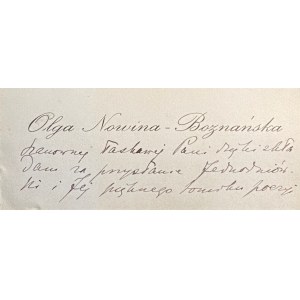 Olga Nowina-Boznańska
Szanownej Łaskawej Pani dzięki skła
dam za przysłanie Jednodniów
ki i Jej pięknego tomiku poezji